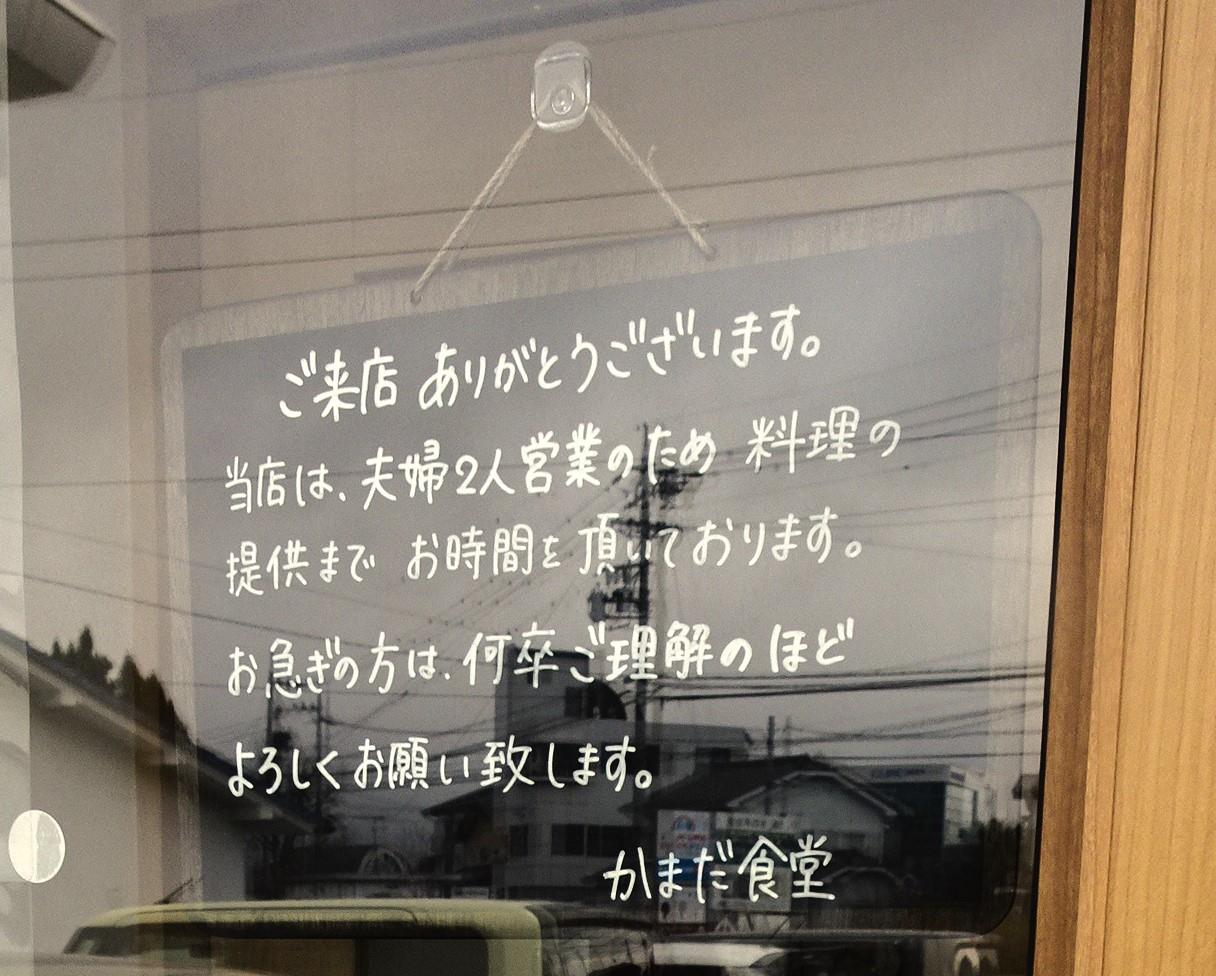 ご来店 ありがとうございます。
当店は、夫婦2人営業のため 料理の
提供まで お時間を 頂いております。
お急ぎの方は、何卒ご理解のほど
よろしくお願い致します。
かまだ食堂